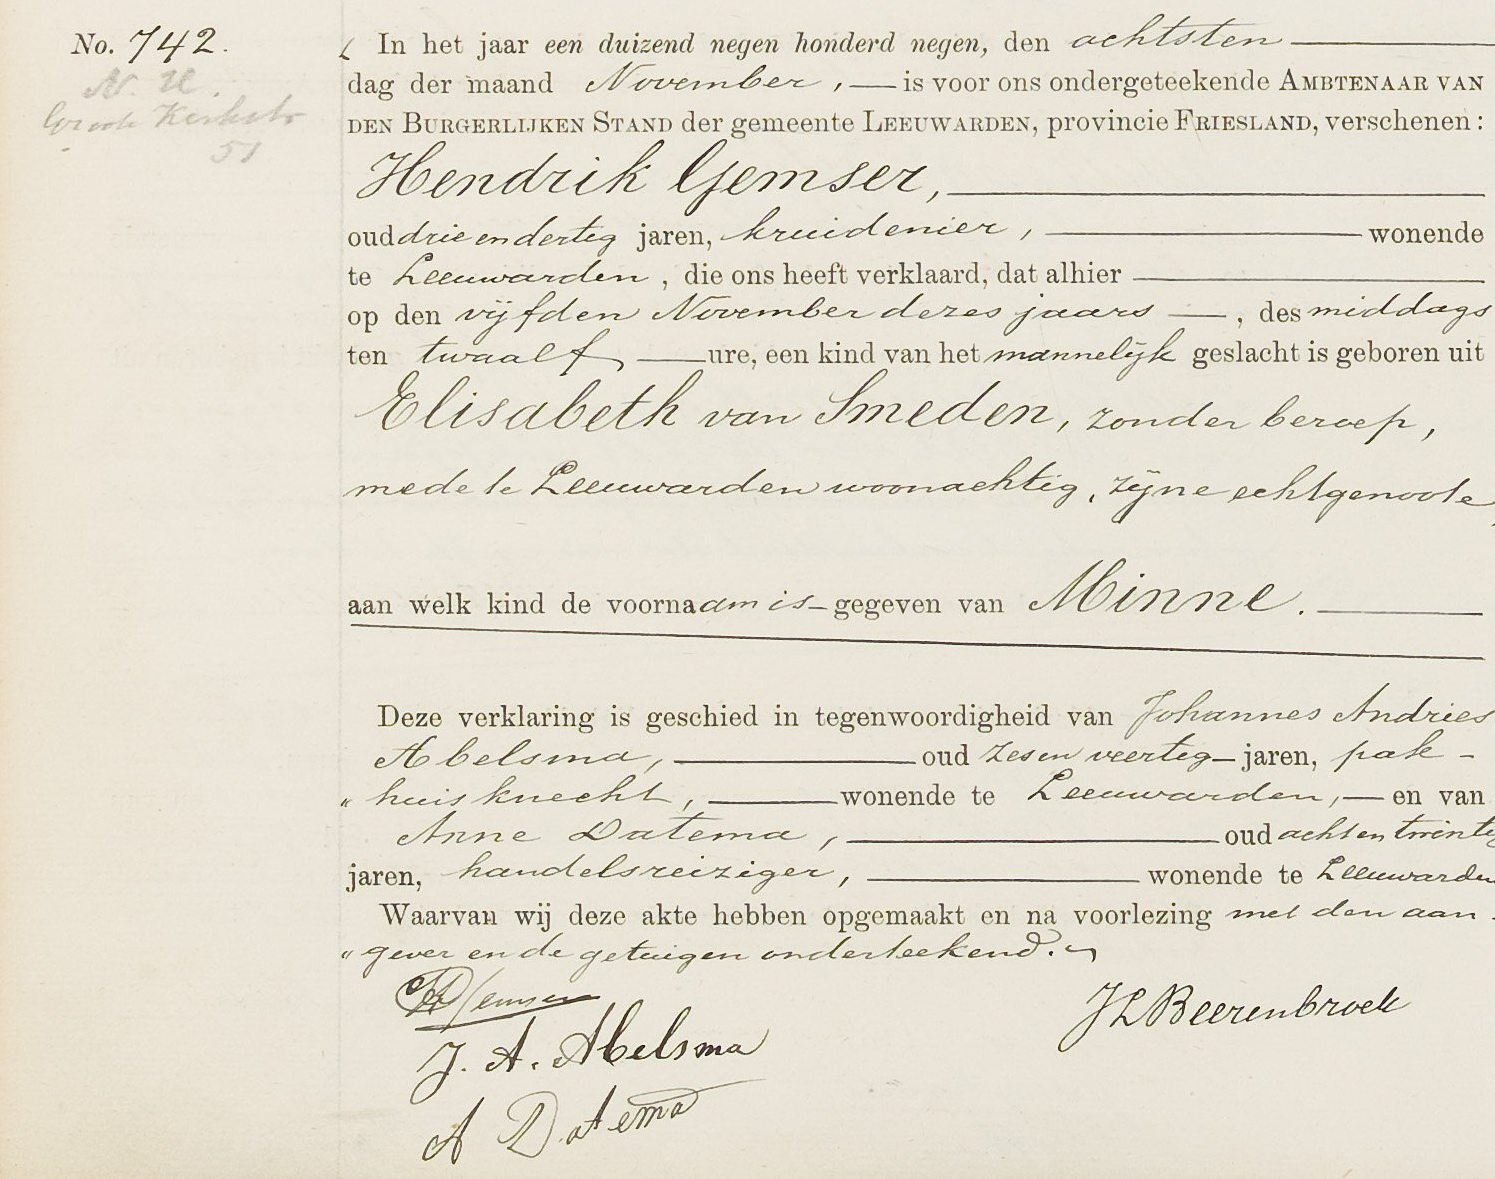 No. 742.
N. H.
Groote Kerkstr
51
In het jaar een duizend negen honderd negen, den achtsten
dag der maand November, — is voor ons ondergeteekende AMBTENAAR VAN
DEN BURGERLIJKEN STAND der gemeente LEEUWARDEN, provincie FRIESLAND, verschenen:
Hendrik Gemser,
oud drie en dertig jaren, kruidenier, wonende
te Leeuwarden, die ons heeft verklaard, dat alhier
op den vijfden November dezes jaars —, des middags
ten twaalf — ure, een kind van het mannelijk geslacht is geboren uit
Elisabeth van Smeden, zonder beroep,
mede te Leeuwarden woonachtig, zijne echtgenoote,
aan welk kind de voornaam is – gegeven van Minne.
Deze verklaring is geschied in tegenwoordigheid van Johannes Andries
Abelsma, oud zes en veertig – jaren, pak-
„huisknecht, wonende te Leeuwarden, — en van
Anne Datema, oud acht en twintig
jaren, handelsreiziger, wonende te Leeuwarden
Waarvan wij deze akte hebben opgemaakt en na voorlezing met den aan-
„gever en de getuigen onderteekend.
Gemser
J L Beerenbroek
J. A. Abelsma
A Datema